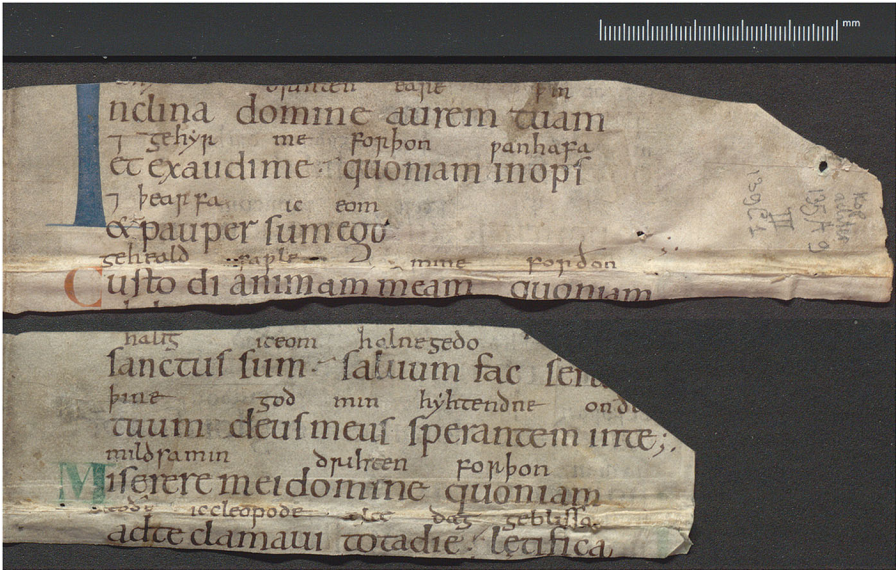 mm
drihten eare þin
Inclina domine aurem tuam
⁊ gehyr me forþon
et exaudi me · quoniam inopſ
⁊ þearfa ic eom
& pauper ſum ego
geheald saple mine fordon
Cuſto di animam meam quoniam
halig iceom halne gedo
ſanctuſ ſum · saluum fac
þine god min hyhtendne
tuum deuſ meuſ ſperantem in te;
mildsa min drihten forþon
Miſerere mei domine quoniam
iccleopode dæg
ad te clamaui tota die · lętifica